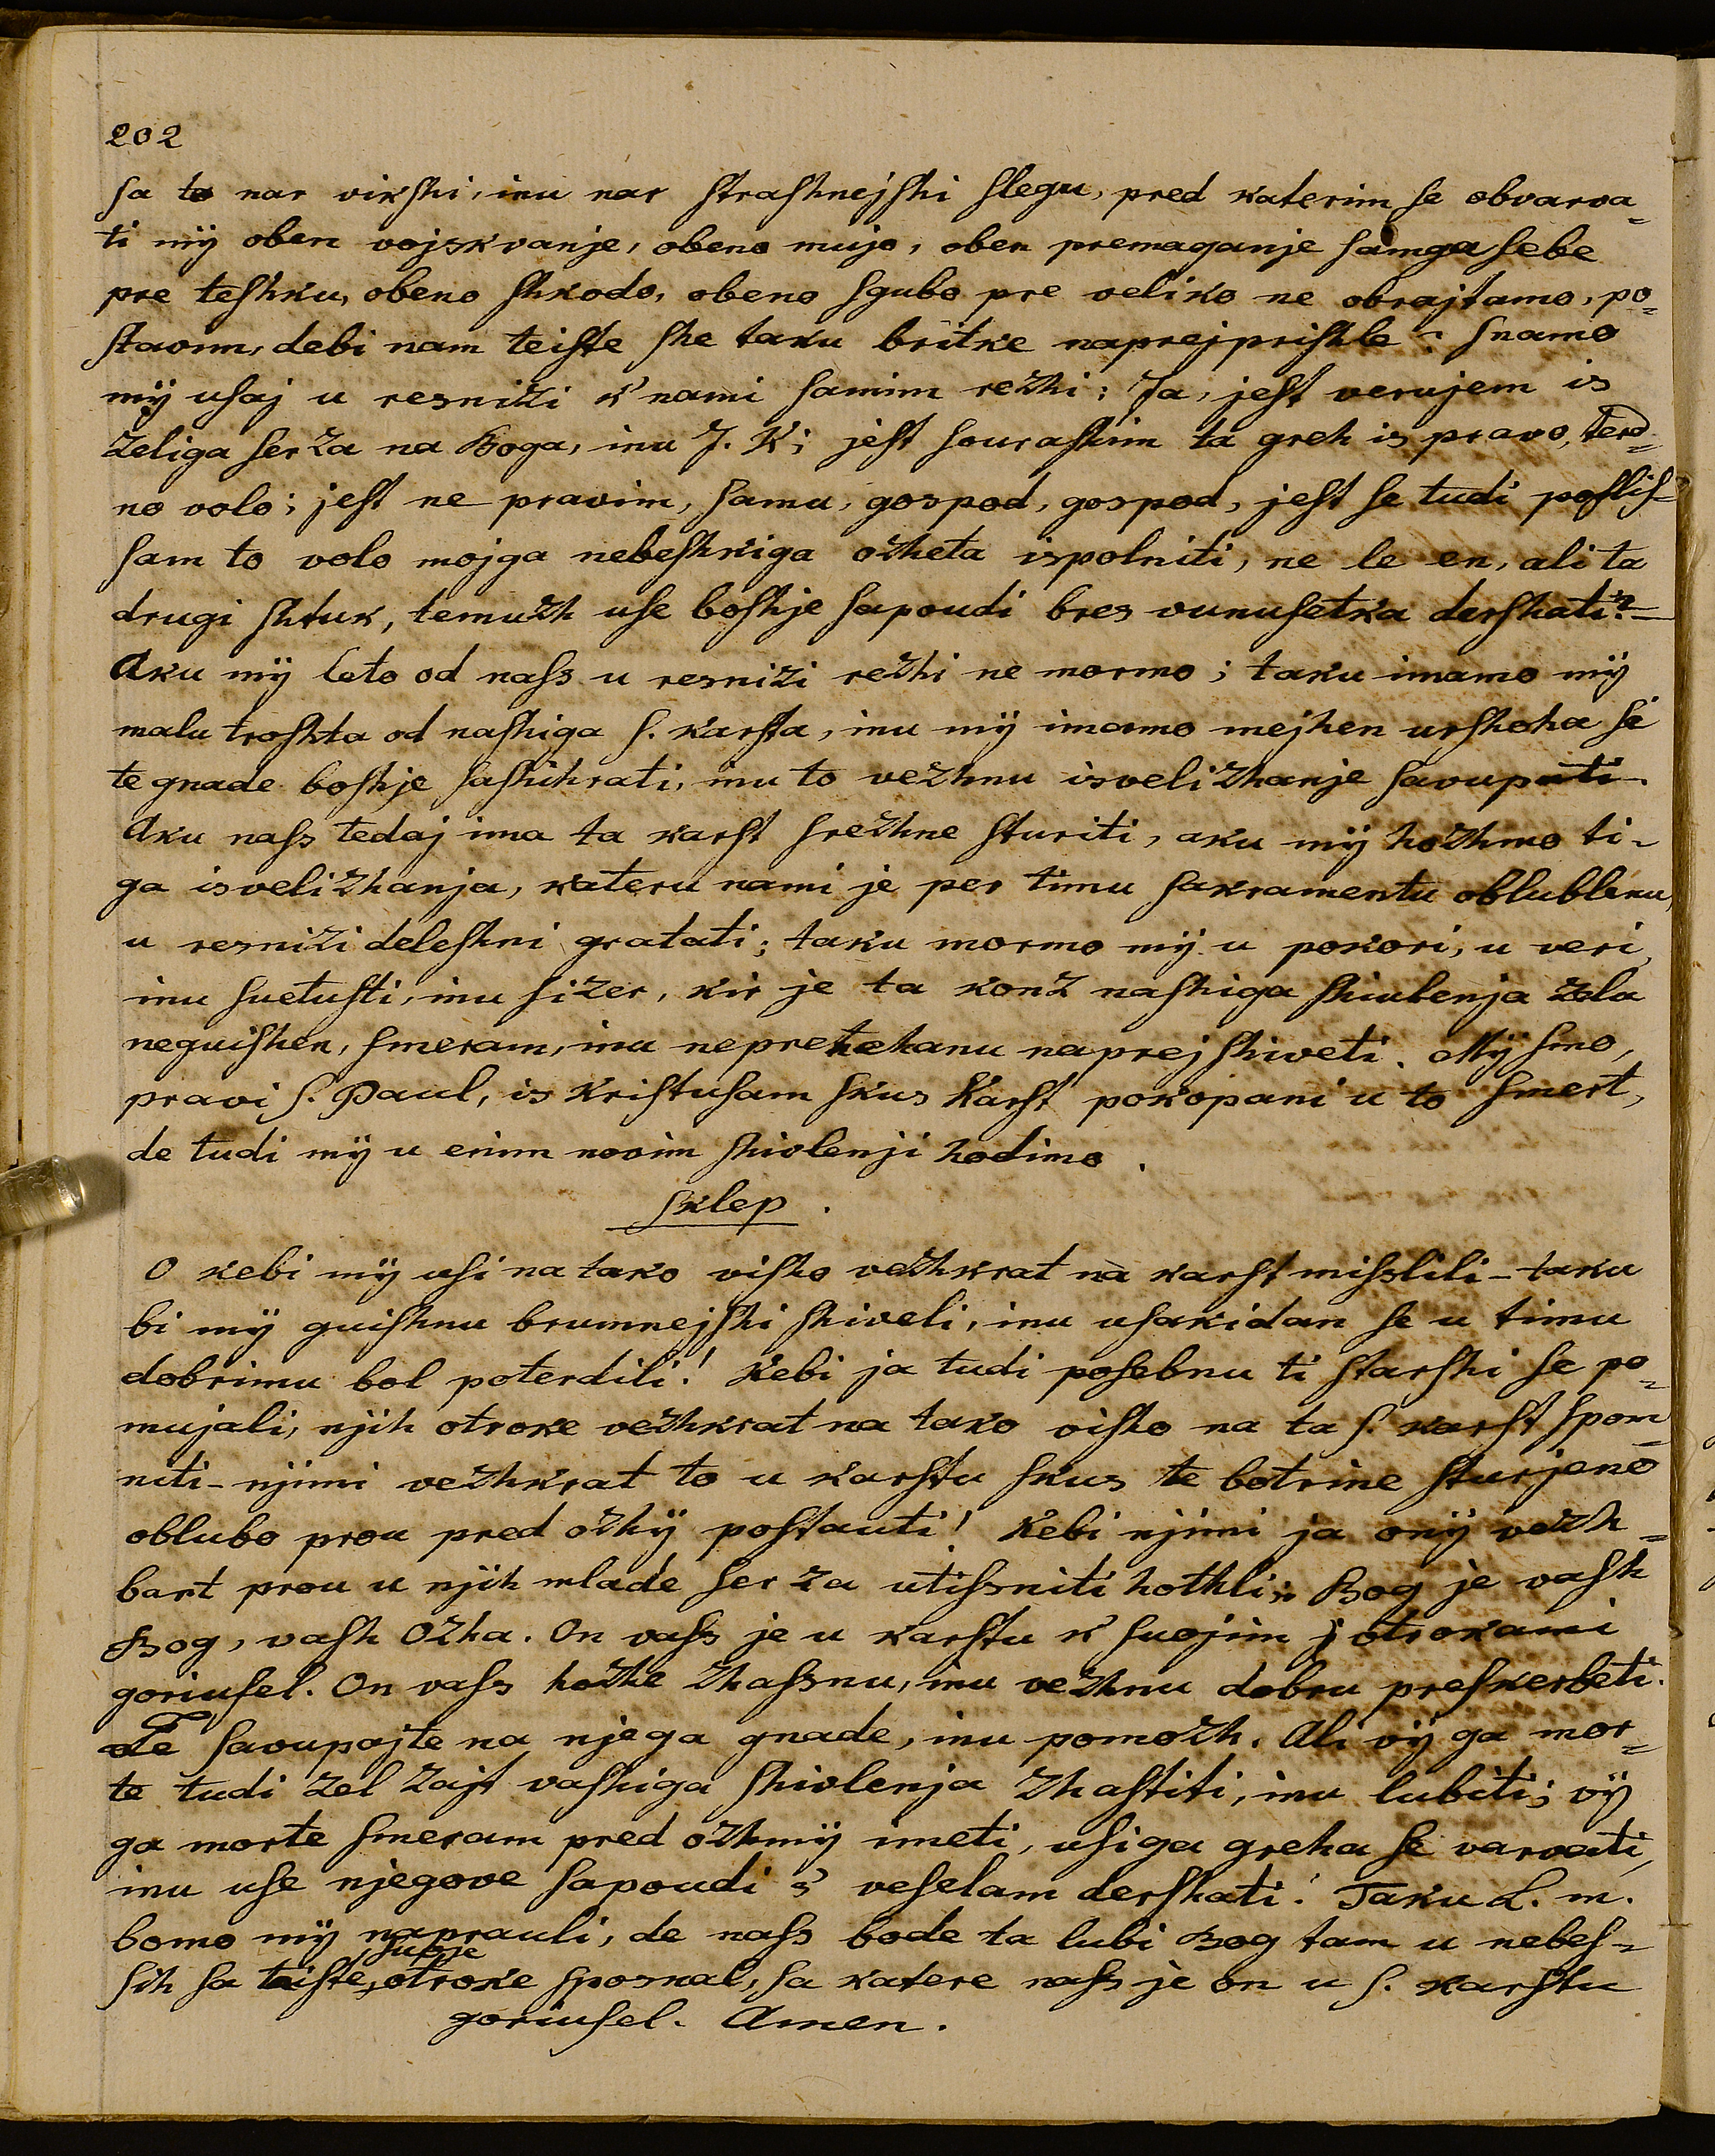 202
ſa to nar vikſhi, inu nar ſtraſhnejſhi ſlegu, pred katerim ſe obvarva¬
ti mÿ oben vojskvanje, obeno mujo, oben premaganje ſamga ſebe
pre teſhku, obeno ſhkodo, obeno ſgubo pre veliko ne obrajtamo, po¬
ſtavim, debi nam teiſte ſhe taku britke naprejpriſhle? ſnamo
mÿ uſaj u resnizi k' nami ſamim rezhi: Ja, jeſt verujem is
zeliga ſerza na Boga, inu J. K; jeſt ſouraſhim ta greh is pravo, terd¬
no volo; jeſt ne pravim, ſamu, gospod, gospod, jeſt ſe tudi poſliſ¬
ſam to volo mojga nebeſhkiga ozheta ispolniti, ne le en, ali ta
drugi ſhtuk, temuzh uſe boſhje ſapoudi bres vunuſetka derſhati?
Aku mÿ leto od naſs u resnizi rezhi ne mormo; taku imamo mÿ
malu troſhta od naſhiga ſ. karſta, inu mÿ imamo mejhen urſhoha ſi
te gnade boſhje ſaſhihrati, inu to vezhnu isvelizhanje ſavupati.
Aku naſs tedaj ima ta karſt ſrezhne ſturiti, aku mÿ hozhmo ti¬
ga isvelizhanja, kateru nami je per timu ſakramentu oblublenu,
u resnizi deleſhni gratati; taku mormo mÿ u pokori, u veri,
inu ſuetuſti, inu ſizer, kir je ta konz naſhiga ſhiulenja zela
neguiſhen, ſmeram, inu nepretehanu naprej ſhiveti. Mÿ ſmo,
pravi ſ. Paul, is Kriſtuſam ſkus Karſt pokopani u to ſmert,
de tudi mÿ u enim novim ſhivlenji hodimo.
Sklep.
O kebi mÿ uſi na tako viſho vezhkrat na karſt miſslili - taku
bi mÿ guiſhnu brumnejſhi ſhiveli, inu uſakidan ſe u timu
dobrimu bol poterdili! Kebi ja tudi poſebnu ti ſtarſhi ſe po¬
mujali, njih otroke vezhkrat na tako viſho na ta ſ. karſt ſpom¬
niti - njimi vezhkrat to u karſtu ſkus te botrine ſturjeno
oblubo prou pred ozhÿ poſtauti! Kebi njimi ja onÿ vezh¬
bart prou u njih mlade ſerza utiſsniti hothli: Bog je vaſh
Bog, vaſh Ozha. On vaſs je u karſtu k' ſuojim otrokami
goriuſel. On vaſs hozhe zhaſsnu, inu vezhnu dobru preſkerbeti.
Le ſavupajte na njega gnade, inu pomozh. Ali vÿ ga mor¬
te tudi zel zajt vaſhiga ſhivlenja zhaſtiti, inu lubiti; vÿ
ga morte ſmeram pred ozhmÿ imeti, uſiga greha ſe varvati,
inu uſe njegove ſapoudi s' veſelam derſhati! Taku L. m.
bomo mÿ naprauli, de naſs bode ta lubi Bog tam u nebeſ¬
ſih ſa teiſte ſuoje otroke ſposnal, ſa katere naſs je on u ſ. karſtu
goriuſel. Amen.